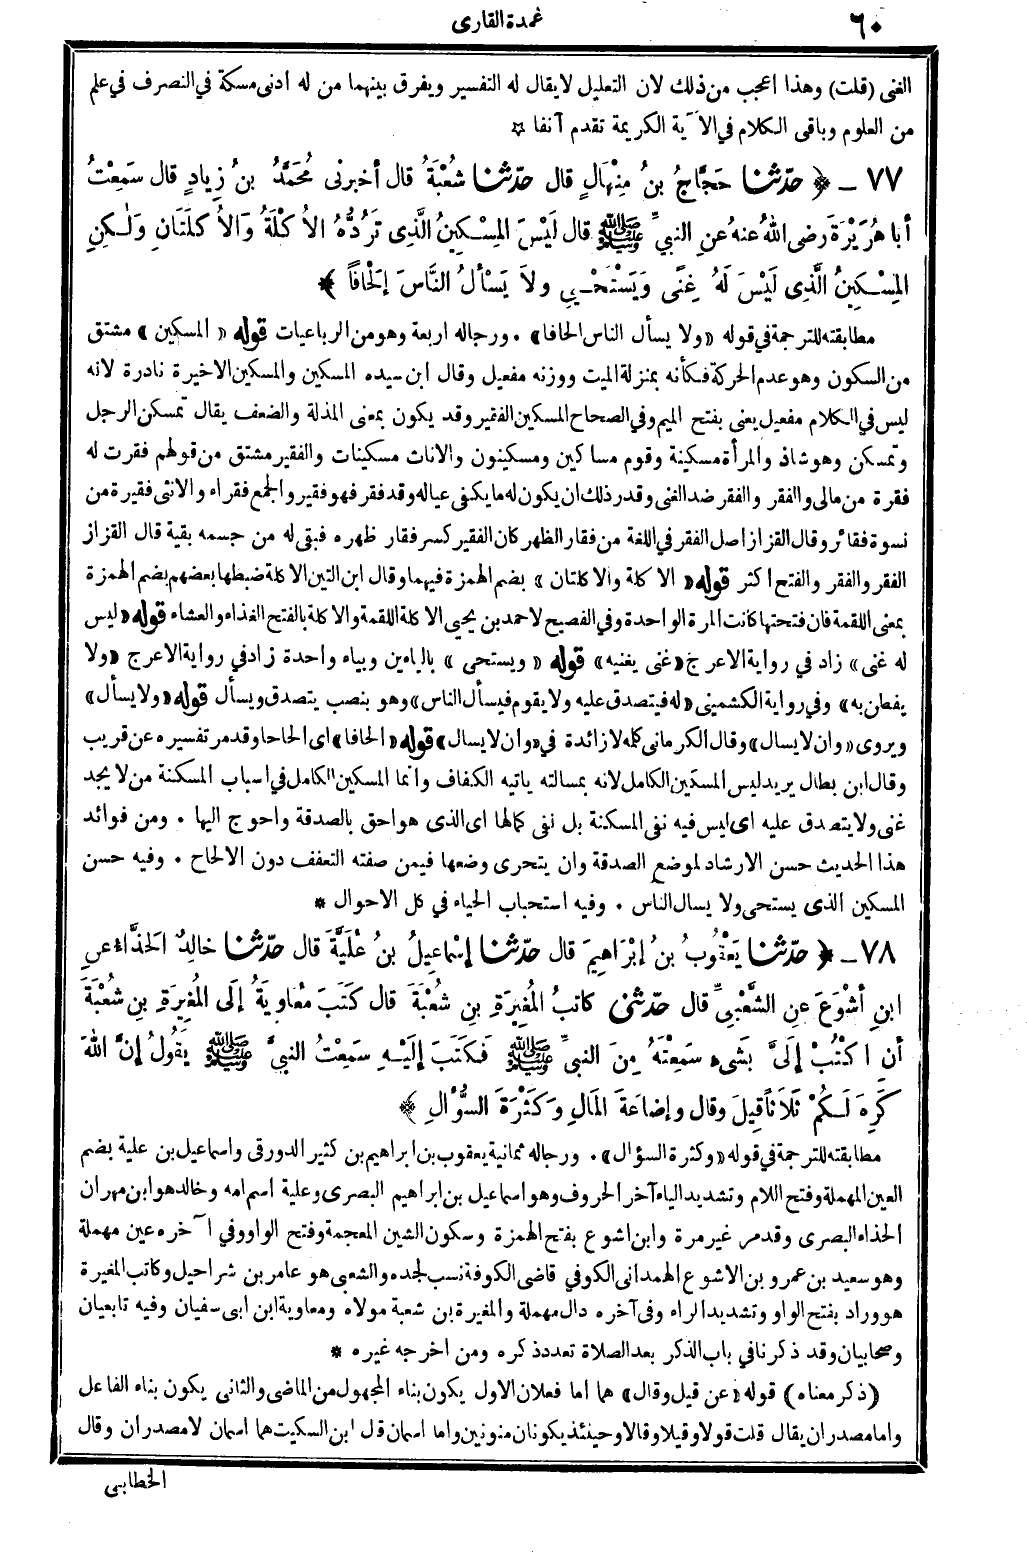 ٦٠
عمدة القارى
الغنى (قلت) وهذا اعجب من ذلك لان التعليل لا يقال له التفسير ويفرق بينهما من له أدنى مسكة في التصرف في علم
من العلوم وباقى الكلام في الآية الكريمة تقدم آنفا ☆
٧٧ ـ ﴿ حدّثنا حَجَّاجُ بنُ مِنْهَالٍ قال حدّثنا شُعْبَةُ قال أخبرنى مُحَمَّدُ بنُ زِيادٍ قال سَمِعْتُ
أبا هُرَيْرَةَ رضى اللهُ عنهُ عنِ النبيِّ ﷺ قال لَيْسَ المِسْكِينُ الَّذِى تَرُدُّهُ الأُكْلَةُ وَالأُكلَتَانِ وَلٰكِنِ
المِسْكِينُ الَّذِى لَيْسَ لَهُ غِنًى وَيَسْتَحْيِي ولاَ يَسْألُ النَّاسَ إلْحَافاً ﴾
مطابقته للترجمة في قوله «ولا يسأل الناس الحافا» . ورجاله اربعة وهو من الرباعيات قوله «المسكين» مشتق
من السكون وهو عدم الحركة فكأنه بمنزلة الميت ووزنه مفعيل وقال ابن سيده المسكين والمسكين الاخيرة نادرة لانه
ليس في الكلام مفعيل يعنى بفتح الميم وفي الصحاح المسكين الفقير وقد يكون بمعنى المذلة والضعف يقال تمسكن الرجل
وتمسكن وهو شاذ والمرأة مسكينة وقوم مساكين ومسكينون والاناث مسكينات والفقير مشتق من قولهم فقرت له
فقرة من مالى والفقر والفقر ضد الغنى وقدر ذلك ان يكون له ما يكفى عياله وقد فقر فهو فقير والجمع فقراء والانثى فقيرة من
نسوة فقائر وقال القزاز اصل الفقر في اللغة من فقار الظهر كان الفقير كسر فقار ظهره فبقى له من جسمه بقية قال القزاز
الفقر والفقر والفتح اكثر قوله «الاكلة والاكلتان» بضم الهمزة فيهما وقال ابن التين الاكلة ضبطها بعضهم بضم الهمزة
بمعنى اللقمة فان فتحتها كانت المرة الواحدة وفي الفصيح لاحمد بن يحيى الاكلة اللقمة والاكلة بالفتح الغذاء والعشاء قوله «ليس
له غنى» زاد في رواية الاعرج «غنى يغنيه» قوله «ويستحى» بالياءين وبياء واحدة زاد في رواية الاعرج «ولا
يفطن به» وفي رواية الكشمينى «له فيتصدق عليه ولا يقوم فيسأل الناس» وهو بنصب يتصدق ويسأل قوله «ولا يسأل»
ويروى «وان لا يسال» وقال الكرمانى كلمه لا زائدة في «وان لا يسال» قوله «الحافا» اى الحاحا وقد مر تفسيره عن قريب
وقال ابن بطال يريد ليس المسكين الكامل لانه بمسالته ياتيه الكفاف وانما المسكين الكامل في اسباب المسكنة من لا يجد
غنى ولا يتصدق عليه اى ليس فيه نفى المسكنة بل نفى كمالها اى الذى هو احق بالصدقة واحوج اليها . ومن فوائد
هذا الحديث حسن الارشاد لموضع الصدقة وان يتحرى وضعها فيمن صفته التعفف دون الالحاح . وفيه حسن
المسكين الذى يستحى ولا يسال الناس . وفيه استحباب الحياء في كل الاحوال *
٧٨ ـ ﴿ حدّثنا يَعْقُوبُ بنُ إبْرَاهِيمَ قال حدّثنا إسْماعِيلُ بنُ عُلَيَّةَ قال حدّثنا خالِدٌ الحَذَّاءُ عنِ
ابنِ أشْوَعَ عنِ الشَّعْبِىِّ قال حدّثنى كاتِبُ المُغِيرَةِ بنِ شُعْبَةَ قال كَتَبَ مُعَاوِيَةُ إلَى المُغِيرَةِ بنِ شُعْبَةَ
أنِ اكْتُبْ إلَىَّ بِشَىءٍ سَمِعْتَهُ مِنَ النبيِّ ﷺ فَكَتَبَ إلَيْهِ سَمِعْتُ النبيَّ ﷺ يَقُولُ إنَّ اللهَ
كَرِهَ لَكُمْ ثَلاَثاً قِيلَ وقال وإضاعَةَ المَالِ وَكَثْرَةَ السُّؤَالِ ﴾
مطابقته للترجمة في قوله «وكثرة السؤال» . ورجاله ثمانية يعقوب بن ابراهيم بن كثير الدورقى واسماعيل بن علية بضم
العين المهملة وفتح اللام وتشديد الياء آخر الحروف وهو اسماعيل بن ابراهيم البصرى وعلية اسم امه وخالد هو ابن مهران
الحذاء البصرى وقد مر غير مرة وابن اشوع بفتح الهمزة وسكون الشين المعجمة وفتح الواو وفي آخره عين مهملة
وهو سعيد بن عمرو بن الاشوع الهمدانى الكوفي قاضى الكوفة نسب لجده والشعبى هو عامر بن شراحيل وكاتب المغيرة
هو وراد بفتح الواو وتشديد الراء وفى آخره دال مهملة والمغيرة بن شعبة مولاه ومعاوية ابن ابى سفيان وفيه تابعيان
وصحابيان وقد ذكرنا في باب الذكر بعد الصلاة تعدد ذكره ومن اخرجه غيره *
(ذكر معناه) قوله «عن قيل وقال» هما اما فعلان الاول يكون بناء المجهول من الماضى والثانى يكون بناء الفاعل
واما مصدران يقال قلت قولا وقيلا وقالا وحينئذ يكونان منونين واما اسمان قل ابن السكيت هما اسمان لا مصدران وقال
الخطابى